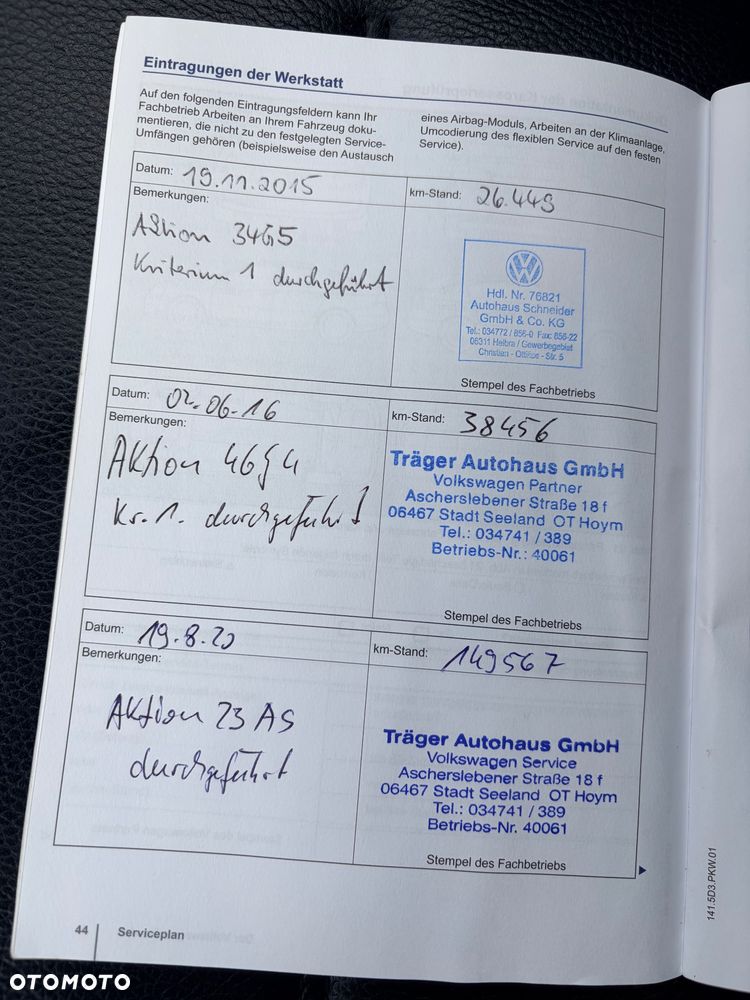 Eintragungen der Werkstatt
Auf den folgenden Eintragungsfeldern kann Ihr
Fachbetrieb Arbeiten an Ihrem Fahrzeug doku-
mentieren, die nicht zu den festgelegten Service-
Umfängen gehören (beispielsweise den Austausch
eines Airbag-Moduls, Arbeiten an der Klimaanlage,
Umcodierung des flexiblen Service auf den festen
Service).
Datum: 19.11.2015
km-Stand: 26.449
Bemerkungen:
Aktion 34G5
Kriterium 1 durchgeführt
Hdl. Nr. 76821
Autohaus Schneider
GmbH & Co. KG
Tel.: 034772 / 856-0 Fax: 856-22
06311 Helbra / Gewerbegebiet
Christian - Ottiliae - Str. 5
Stempel des Fachbetriebs
Datum: 02.06.16
km-Stand: 38456
Bemerkungen:
Aktion 46G4
Kr. 1. durchgeführt
Träger Autohaus GmbH
Volkswagen Partner
Ascherslebener Straße 18 f
06467 Stadt Seeland OT Hoym
Tel.: 034741 / 389
Betriebs-Nr.: 40061
Stempel des Fachbetriebs
Datum: 19.8.20
km-Stand: 149567
Bemerkungen:
Aktion 23 AS
durchgeführt
Träger Autohaus GmbH
Volkswagen Service
Ascherslebener Straße 18 f
06467 Stadt Seeland OT Hoym
Tel.: 034741 / 389
Betriebs-Nr. 40061
Stempel des Fachbetriebs
44
Serviceplan
141.5D3.PKW.01
OTOMOTO